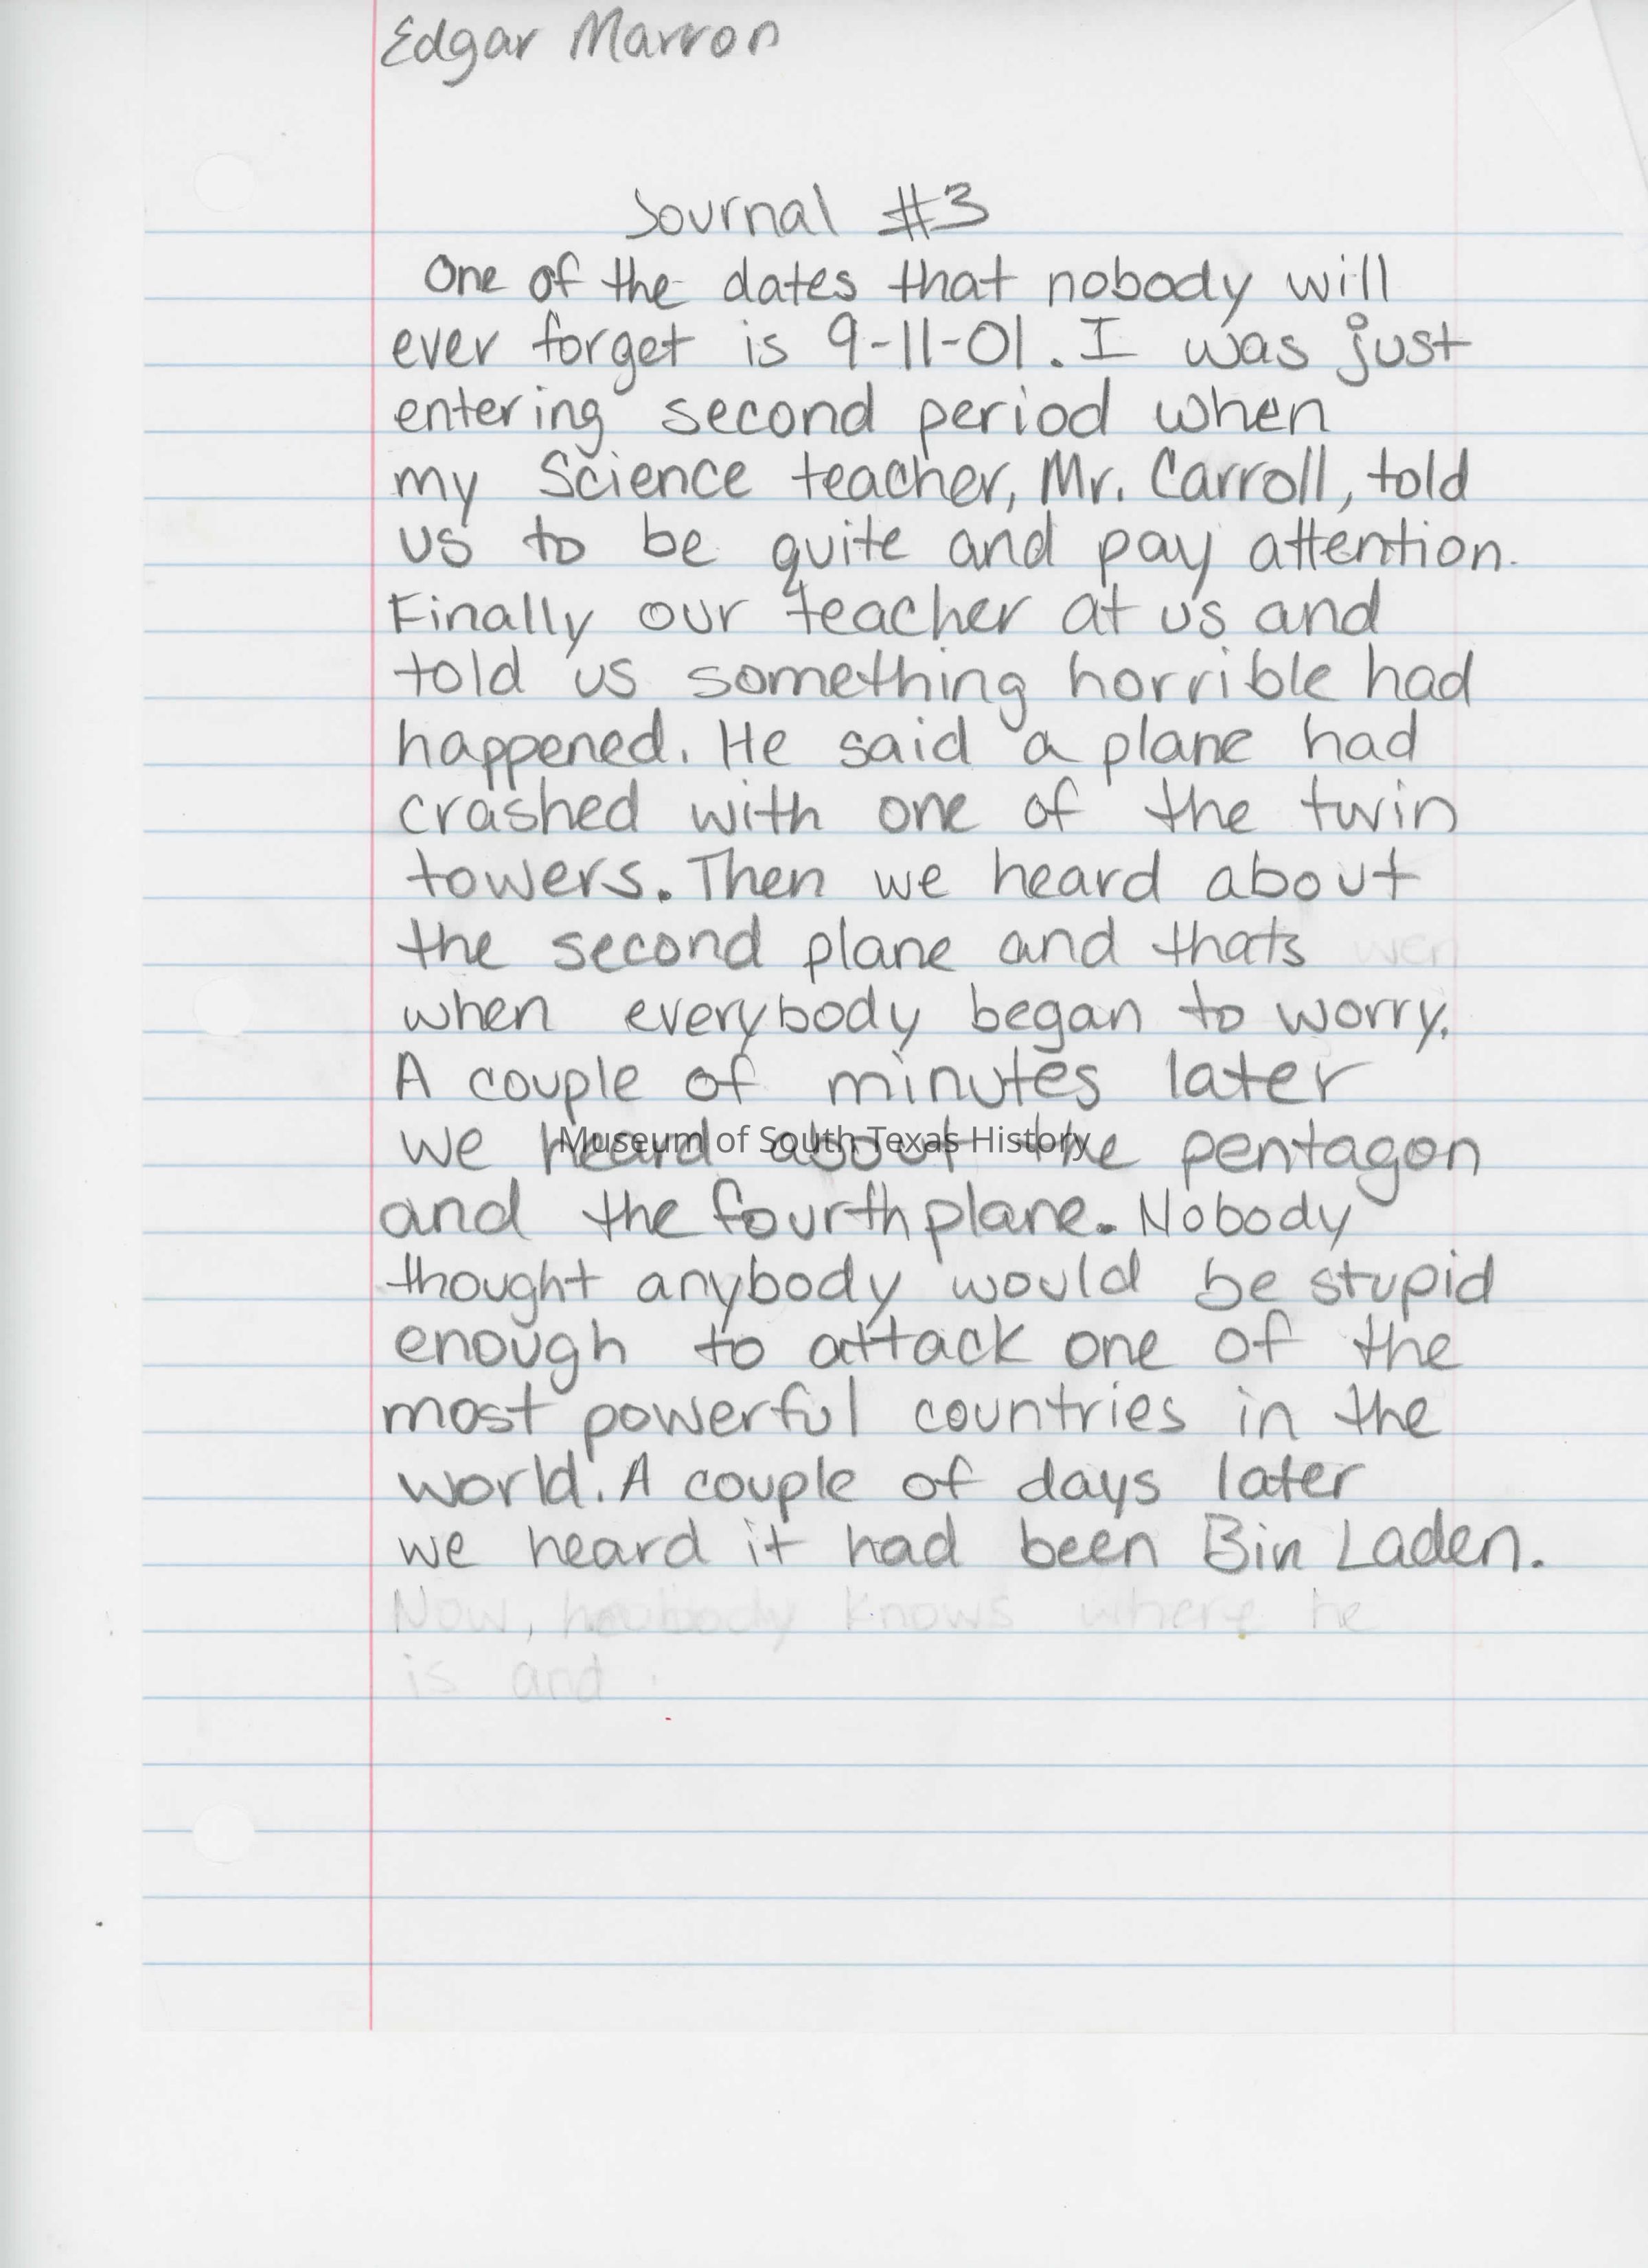 Edgar Marron
Journal #3
One of the dates that nobody will
ever forget is 9-11-01. I was just
entering second period when
my Science teacher, Mr. Carroll, told
us to be quite and pay attention.
Finally our teacher at us and
told us something horrible had
happened. He said a plane had
crashed with one of the twin
towers. Then we heard about
the second plane and thats wen
when everybody began to worry.
A couple of minutes later
we heard about the pentagon
Museum of South Texas History
and the fourth plane. Nobody
thought anybody would be stupid
enough to attack one of the
most powerful countries in the
world. A couple of days later
we heard it had been Bin Laden.
Now, knows where he
is and